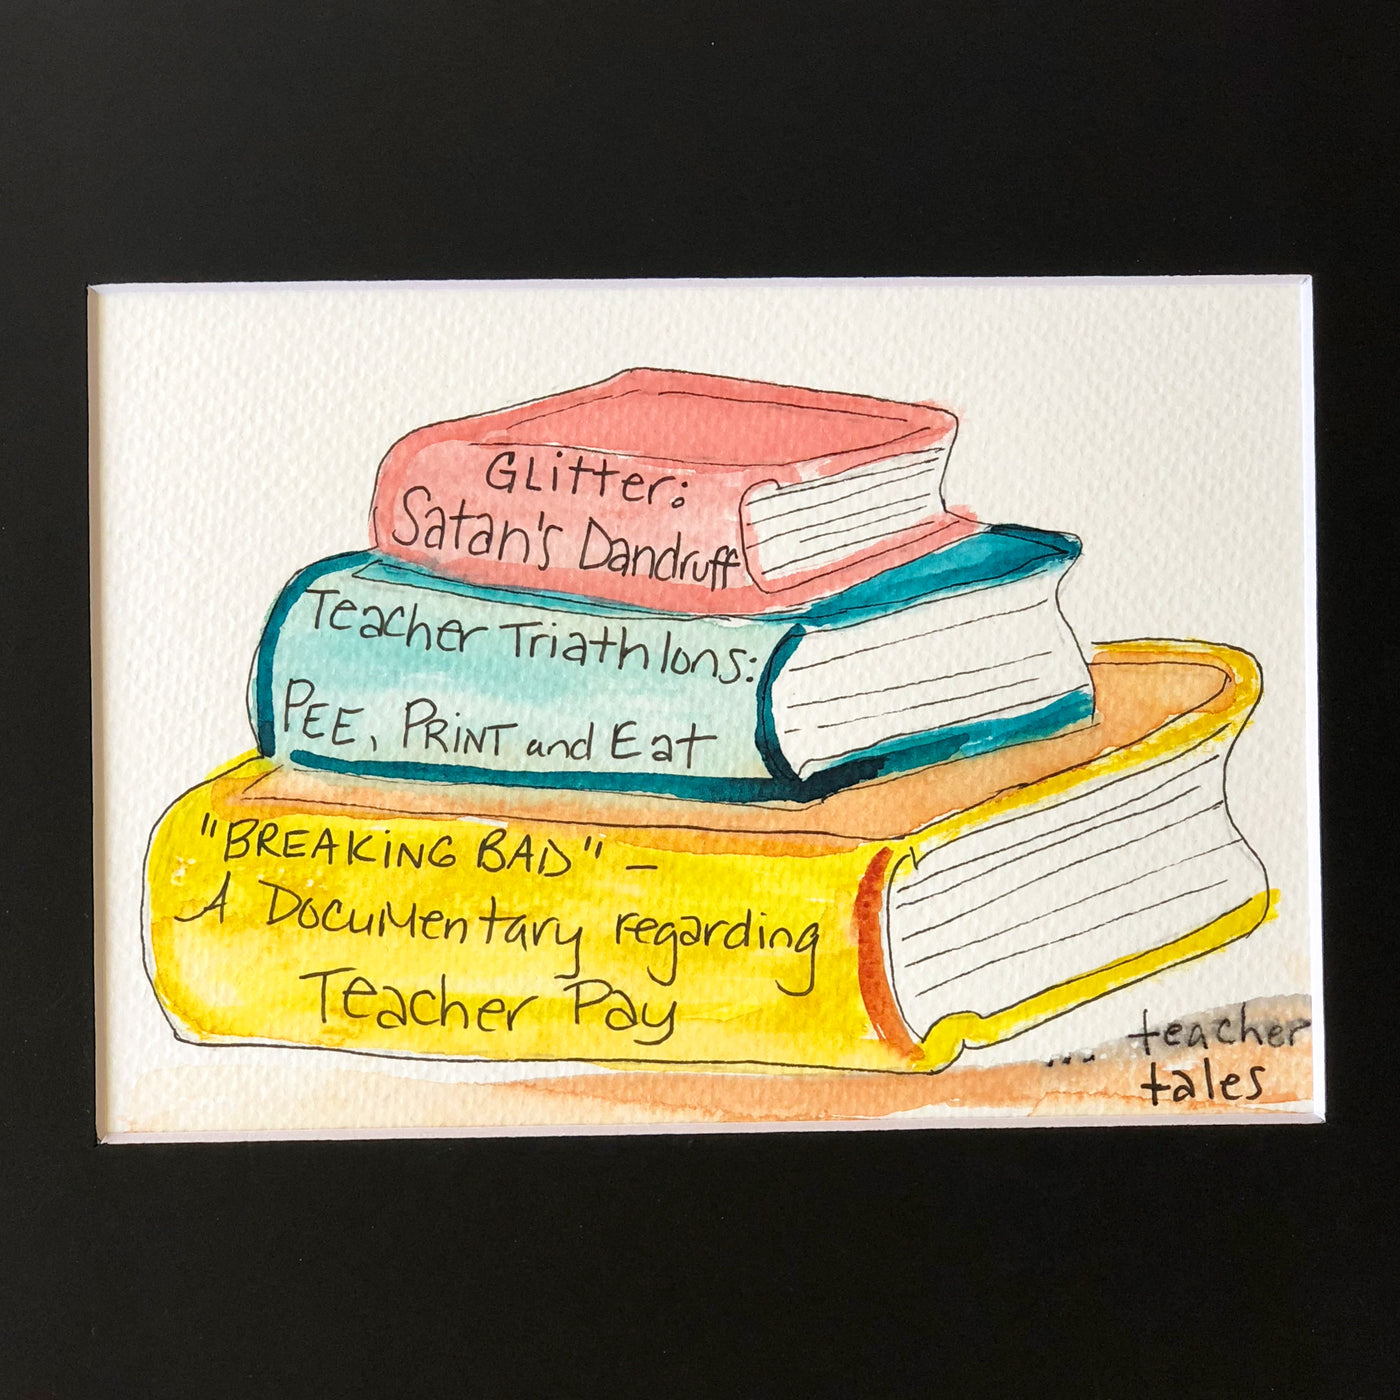 GLitter:
Satan's Dandruff
Teacher Triathlons:
PEE, PRiNT and Eat
"BREAKiNG BAD" –
A Documentary regarding
Teacher Pay
... teacher
tales